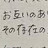 お互いのあ
その存在の